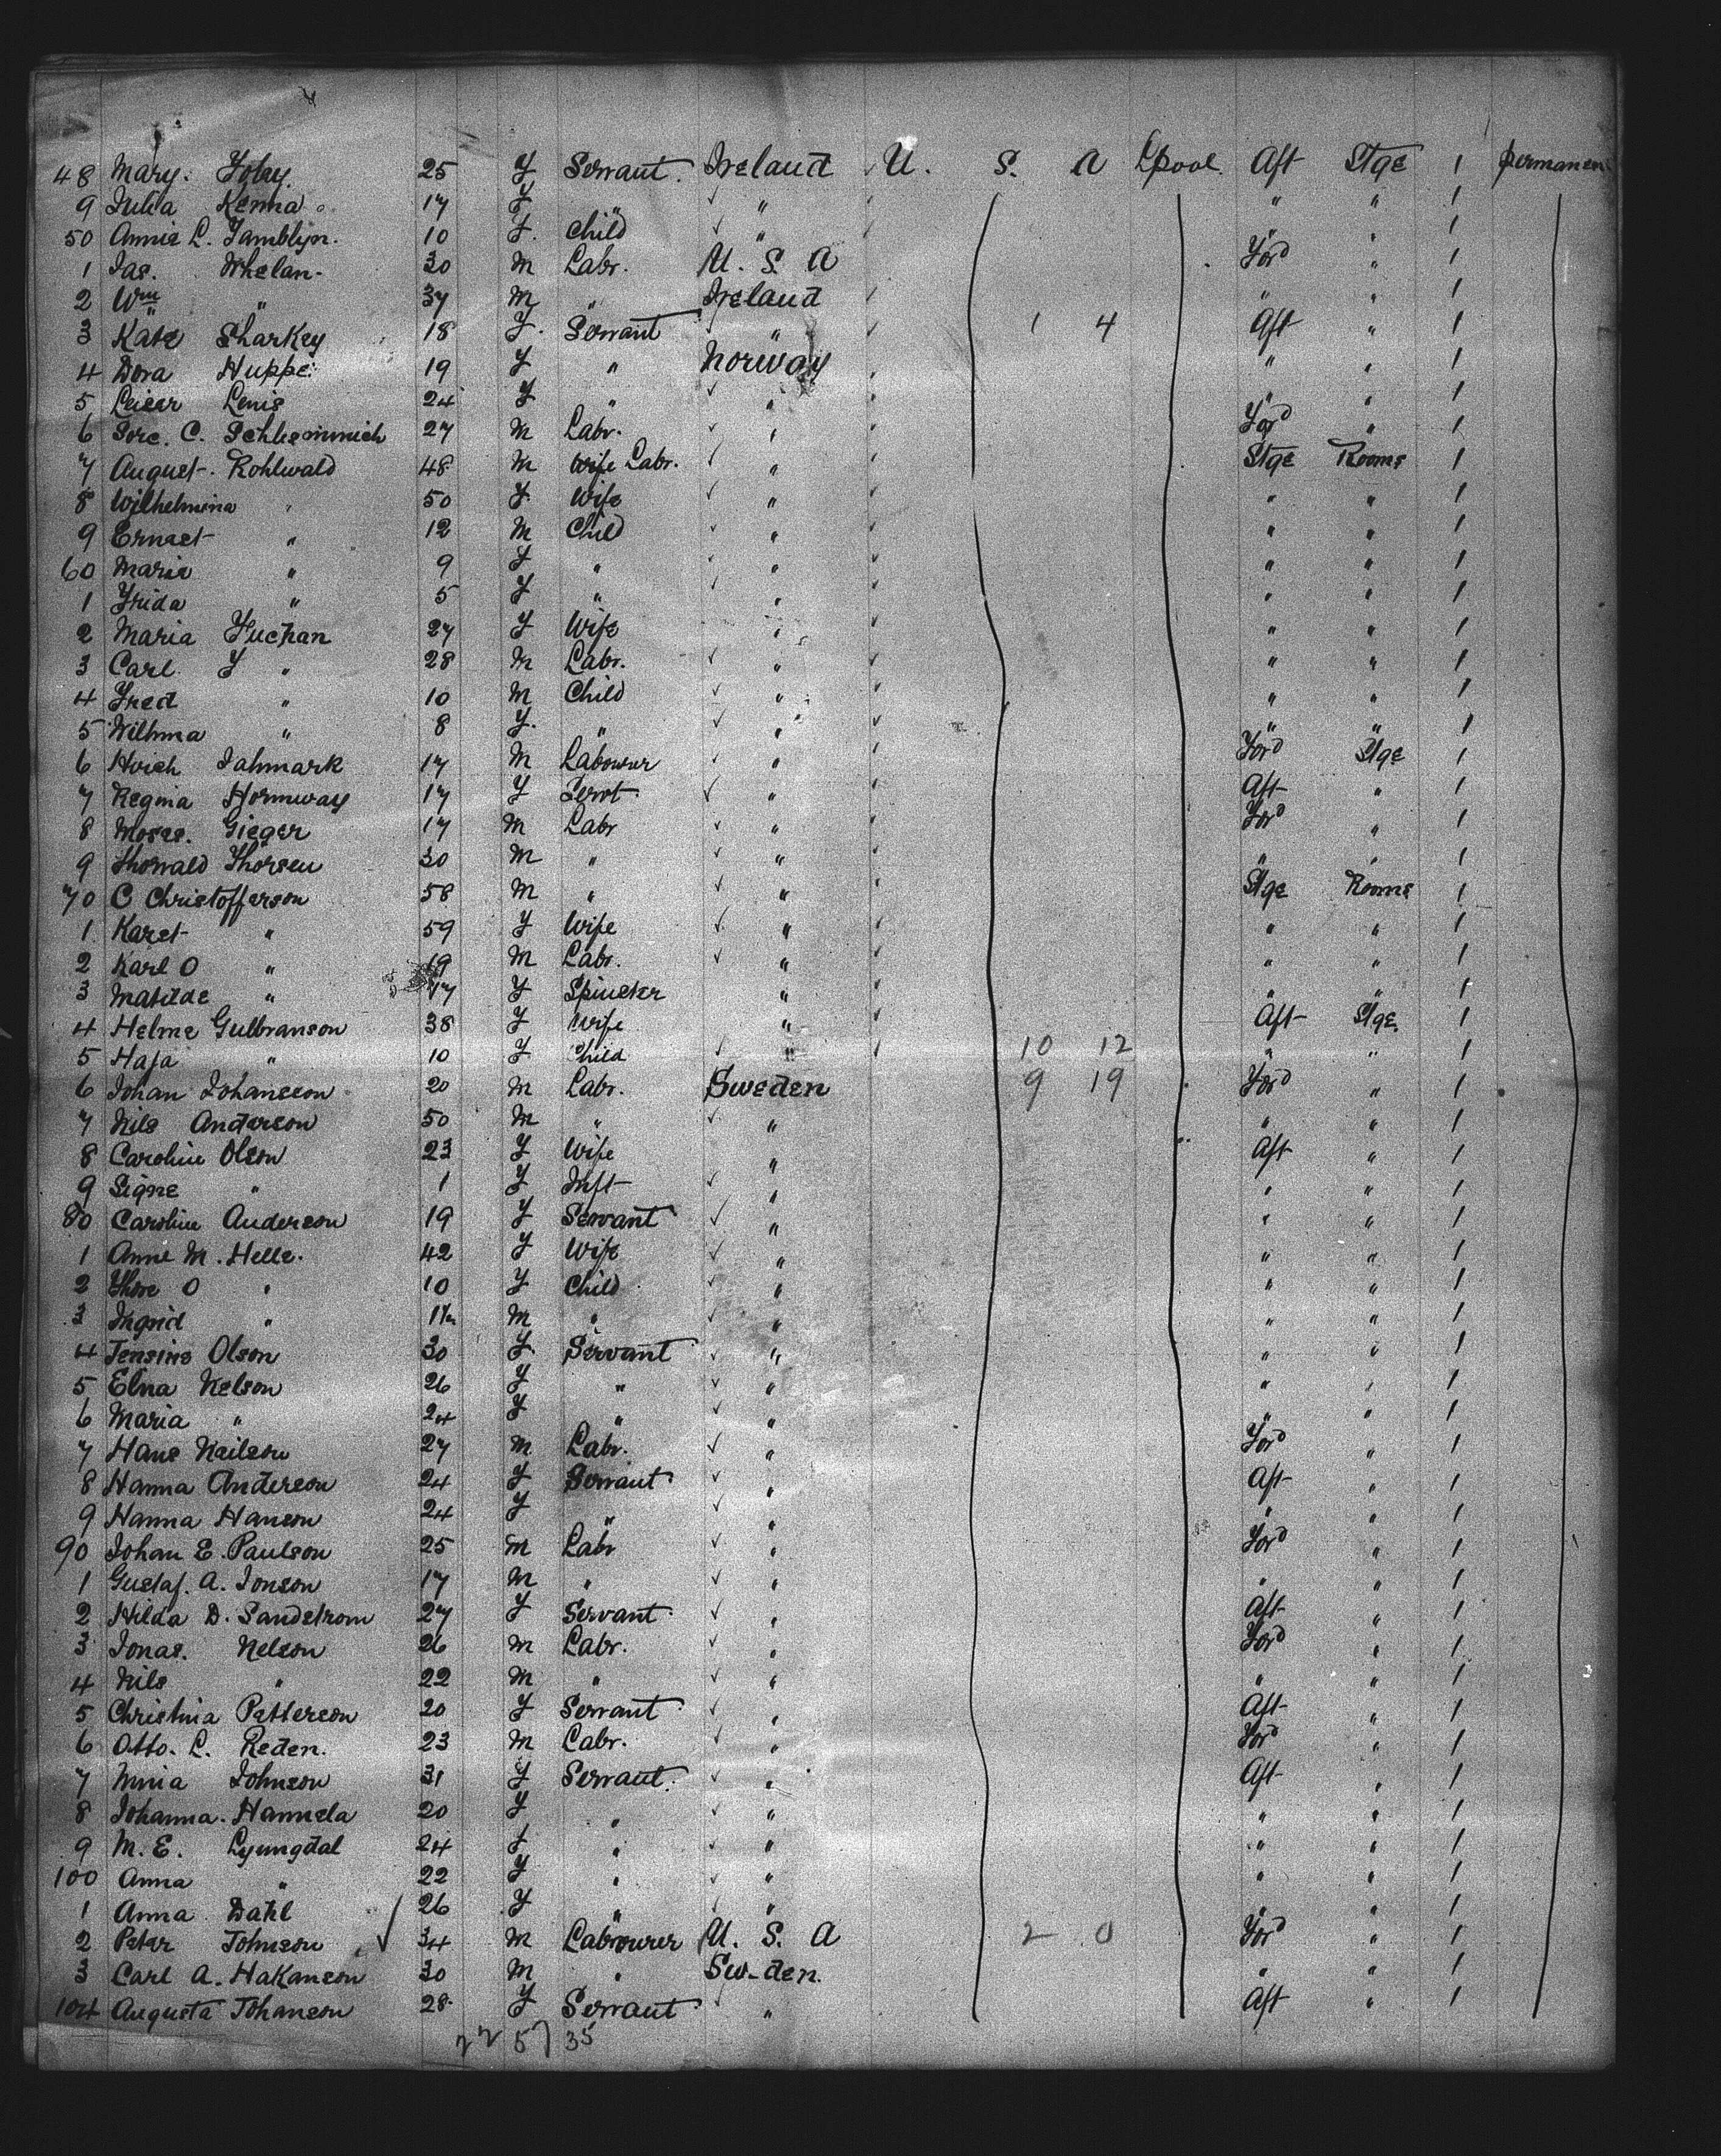 48 Mary. Foley. 25 F Servant. Ireland U. S. A Lpool. Aft Stge 1 permanen
9 Julia Kenna 17 F " " " " 1
50 Annie L. Tamblyn. 10 F. Child " " " 1
1 Jas. Whelan. 30 M Labr. U. S. A Ford " 1
2 Wm " 37 M " Ireland " " 1
3 Kate Sharkey 18 F. Servant " 1 4 Aft " 1
4 Dora Huppe 19 F " Norway " " 1
5 Leiser Lenis 24 F " " " " 1
6 C. 27 M Labr. " Ford " 1
7 August. Rohlwald 48 M Labr. " Stge Rooms 1
8 Wilhelmina " 50 F Wife " " " 1
9 Ernast " 12 M Child " " " 1
60 Maria " 9 F " " " " 1
1 Frida " 5 F " " " " 1
2 Maria Fuchan 27 F Wife " " " 1
3 Carl. F " 28 M Labr. " " " 1
4 Fred " 10 M Child " " " 1
5 Wilhma " 8 F. " " " " 1
6 Jahmark 17 M Labourer " Ford Stge 1
7 Regina Hornway 17 F Servt. " Aft " 1
8 Moses. Gieger 17 M Labr " Ford " 1
9 Thorvald Thorsen 30 M " " " " 1
70 C Christofferson 58 M " " Stge Rooms 1
1 Karet " 59 F Wife " " " 1
2 Karl O " 19 M Labr. " " " 1
3 Matilde " 17 F Spinster " " " 1
4 Helme Gulbranson 38 F Wife " Aft Stge. 1
5 Haja " 10 F Child " 10 12 " " 1
6 Johan Johansson 20 M Labr. Sweden 9 19 Ford " 1
7 Nils Anderson 50 M " " " " 1
8 Caroline Olson 23 F Wife " Aft " 1
9 Signe " 1 F Inft " " " 1
80 Caroline Anderson 19 F Servant " " " 1
1 Anne M. Helle. 42 F Wife " " " 1
2 Thore O " 10 F Child " " " 1
3 Ingrid " M " " " " 1
4 Jensine Olson 30 F. Servant " " " 1
5 Elna Nelson 26 F " " " " 1
6 Maria " 24 F " " " " 1
7 Hans Neilson 27 M Labr. " Ford " 1
8 Hanna Anderson 24 F Servant " Aft " 1
9 Hanna Hanson 24 F " " " " 1
90 Johan E. Paulson 25 M Labr " Ford " 1
1 Gustaf. A. Jonson 17 M " " " " 1
2 Hilda D. Sandstrom 27 F Servant " Aft " 1
3 Jonas. Nelson 26 M Labr. " Ford " 1
4 Nils " 22 M " " " " 1
5 Christina Patterson 20 F Servant " Aft " 1
6 Otto. L. Reden. 23 M Labr. " Ford " 1
7 Johnson 31 F Servant. " Aft " 1
8 Johanna. Hannela 20 F " " " " 1
9 M. E. Lyungdal 24 F " " " " 1
100 Anna " 22 F " " " " 1
1 Anna Dahl 26 F " " " " 1
2 Peter Johnson 34 M Labourer U. S. A 2 0 Ford " 1
3 Carl A. Hakanson 30 M " Sw-den. " " 1
104 Augusta Johanson 28 F Servant " Aft " 1
22 57 35